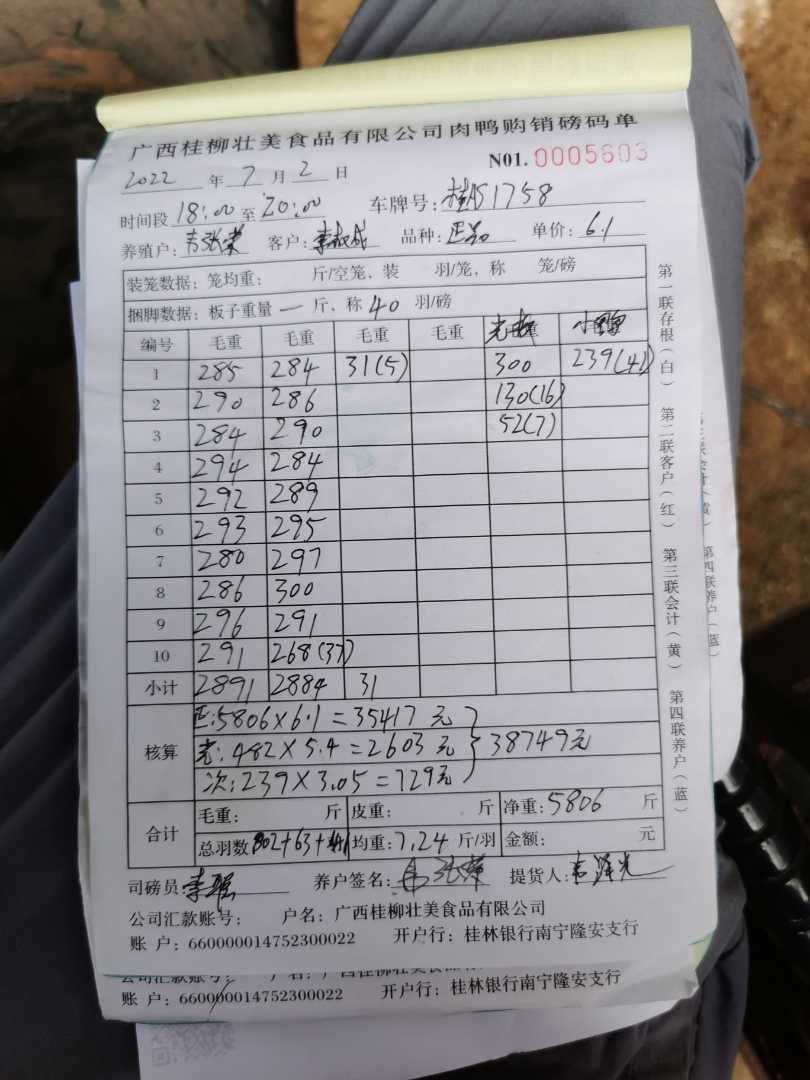 广西桂柳壮美食品有限公司肉鸭购销磅码单
N01. 0005603
2022 年 7 月 2 日
时间段 18:00 至 20:00 车牌号: 桂AS1758
养殖户: 客户: 品种: 正品 单价: 6.1
装笼数据: 笼均重: 斤/空笼、装 羽/笼, 称 笼/磅
捆脚数据: 板子重量 一 斤、称 40 羽/磅
编号 毛重 毛重 毛重 毛重
1 285 284 31(5) 300 239(41)
2 290 286 130(16)
3 284 290 52(7)
4 294 284
5 292 289
6 293 295
7 280 297
8 286 300
9 296 291
10 291 268(37)
小计 2891 2884 31
核算
正:5806×6.1=35417元
光:482×5.4=2603元 38749元
次:239×3.05=729元
合计
毛重: 斤 皮重: 斤 净重:5806 斤
总羽数 802+63+41 均重:7.24 斤/羽 金额: 元
司磅员 养户签名: 提货人:
公司汇款账号: 户名: 广西桂柳壮美食品有限公司
账 户: 660000014752300022 开户行: 桂林银行南宁隆安支行
第一联存根(白) 第二联客户(红) 第三联会计(黄) 第四联养户(蓝)
第四联养户(蓝)
账 户: 660000014752300022 开户行: 桂林银行南宁隆安支行